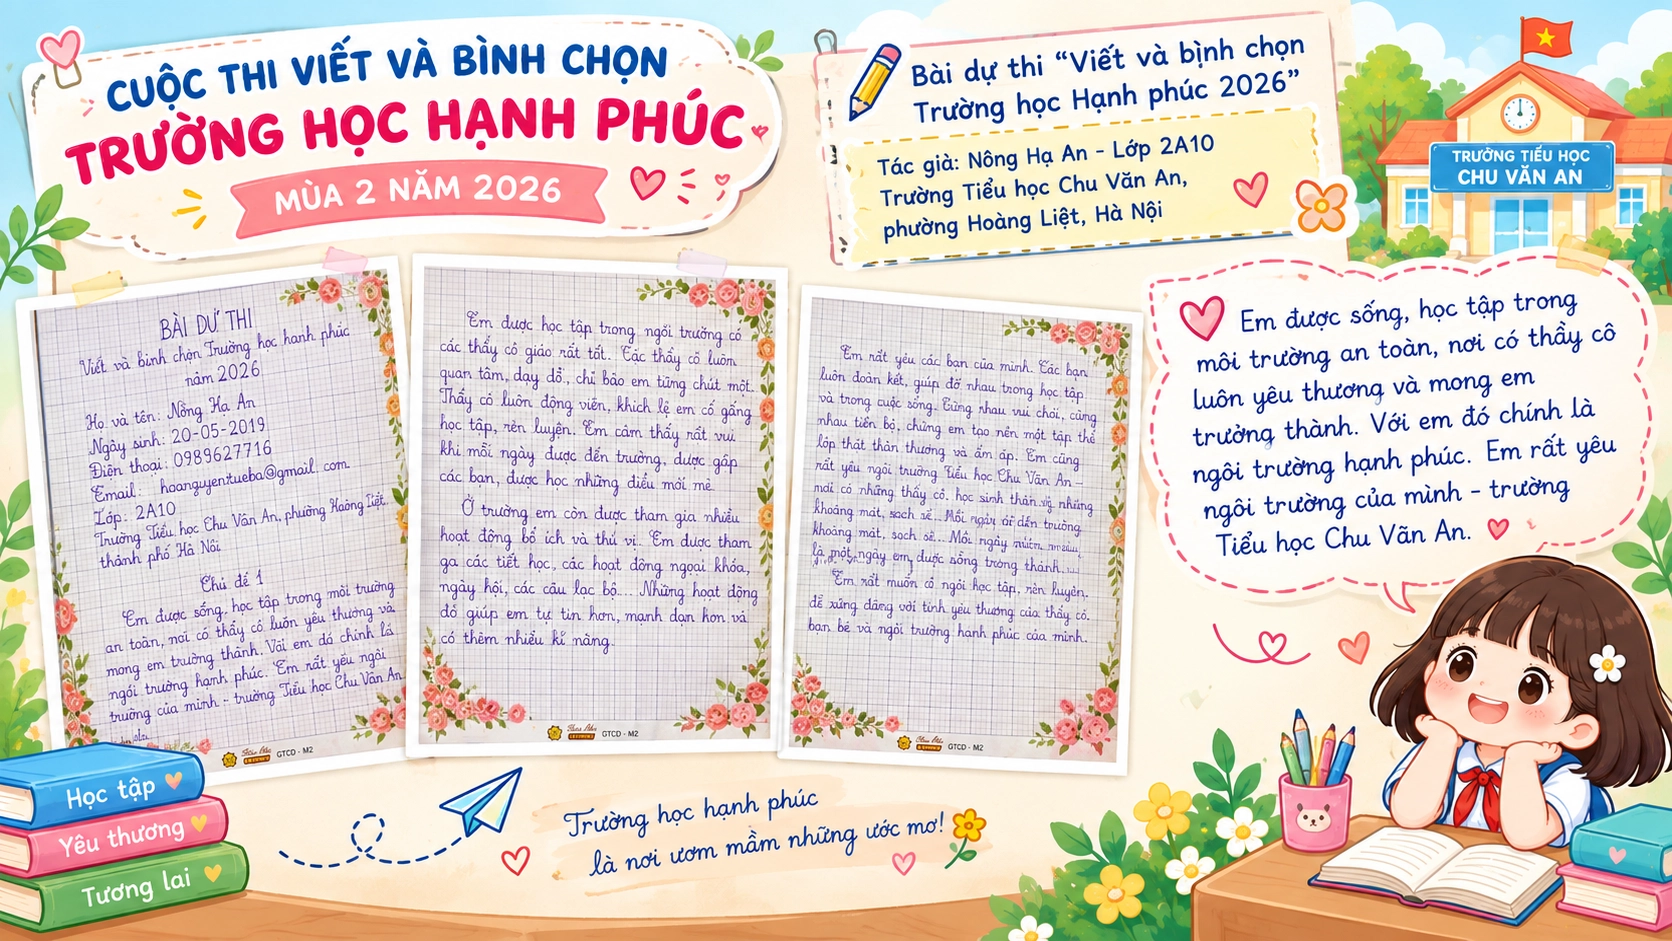 CUỘC THI VIẾT VÀ BÌNH CHỌN
TRƯỜNG HỌC HẠNH PHÚC
MÙA 2 NĂM 2026
Bài dự thi “Viết và bình chọn
Trường học Hạnh phúc 2026”
Tác giả: Nông Hạ An - Lớp 2A10
Trường Tiểu học Chu Văn An,
phường Hoàng Liệt, Hà Nội
TRƯỜNG TIỂU HỌC
CHU VĂN AN
BÀI DỰ THI
Viết và bình chọn Trường học hạnh phúc
năm 2026
Họ và tên: Nông Hạ An
Ngày sinh: 20-05-2019
Điện thoại: 0989627716
Email: hoanguyentueba@gmail.com
Lớp: 2A10
Trường Tiểu học Chu Văn An, phường Hoàng Liệt
thành phố Hà Nội
Chủ đề 1
Em được sống, học tập trong môi trường
an toàn, nơi có thầy cô luôn yêu thương và
mong em trưởng thành. Với em đó chính là
ngôi trường hạnh phúc. Em rất yêu ngôi
trường của mình - trường Tiểu học Chu Văn An
Em được học tập trong ngôi trường có
các thầy cô giáo rất tốt. Các thầy cô luôn
quan tâm, dạy dỗ, chỉ bảo em từng chút một.
Thầy cô luôn động viên, khích lệ em cố gắng
học tập, rèn luyện. Em cảm thấy rất vui
khi mỗi ngày được đến trường, được gặp
các bạn, được học những điều mới mẻ.
Ở trường em còn được tham gia nhiều
hoạt động bổ ích và thú vị. Em được tham
gia các tiết học, các hoạt động ngoại khóa,
ngày hội, các câu lạc bộ.... Những hoạt động
đó giúp em tự tin hơn, mạnh dạn hơn và
có thêm nhiều kĩ năng.
GTCD - M2
GTCD - M2
GTCD - M2
Em rất yêu các bạn của mình. Các bạn
luôn đoàn kết, giúp đỡ nhau trong học tập
và trong cuộc sống. Cùng nhau vui chơi, cùng
nhau tiến bộ, chúng em tạo nên một tập thể
lớp thật thân thương và ấm áp. Em cũng
rất yêu ngôi trường Tiểu học Chu Văn An -
nơi có những thầy cô, học sinh thân những
khoảng mát, sạch sẽ... Mỗi ngày đến trường
khoảng mát, sạch sẽ... Mỗi ngày
là một ngày em được sống trong thành...
Em rất muốn cô ngôi học tập, rèn luyện.
để xứng đáng với tình yêu thương của thầy cô.
bạn bè và ngôi trường hạnh phúc của mình.
Em được sống, học tập trong
môi trường an toàn, nơi có thầy cô
luôn yêu thương và mong em
trưởng thành. Với em đó chính là
ngôi trường hạnh phúc. Em rất yêu
ngôi trường của mình - trường
Tiểu học Chu Văn An.
Học tập
Yêu thương
Tương lai
Trường học hạnh phúc
là nơi ươm mầm những ước mơ!